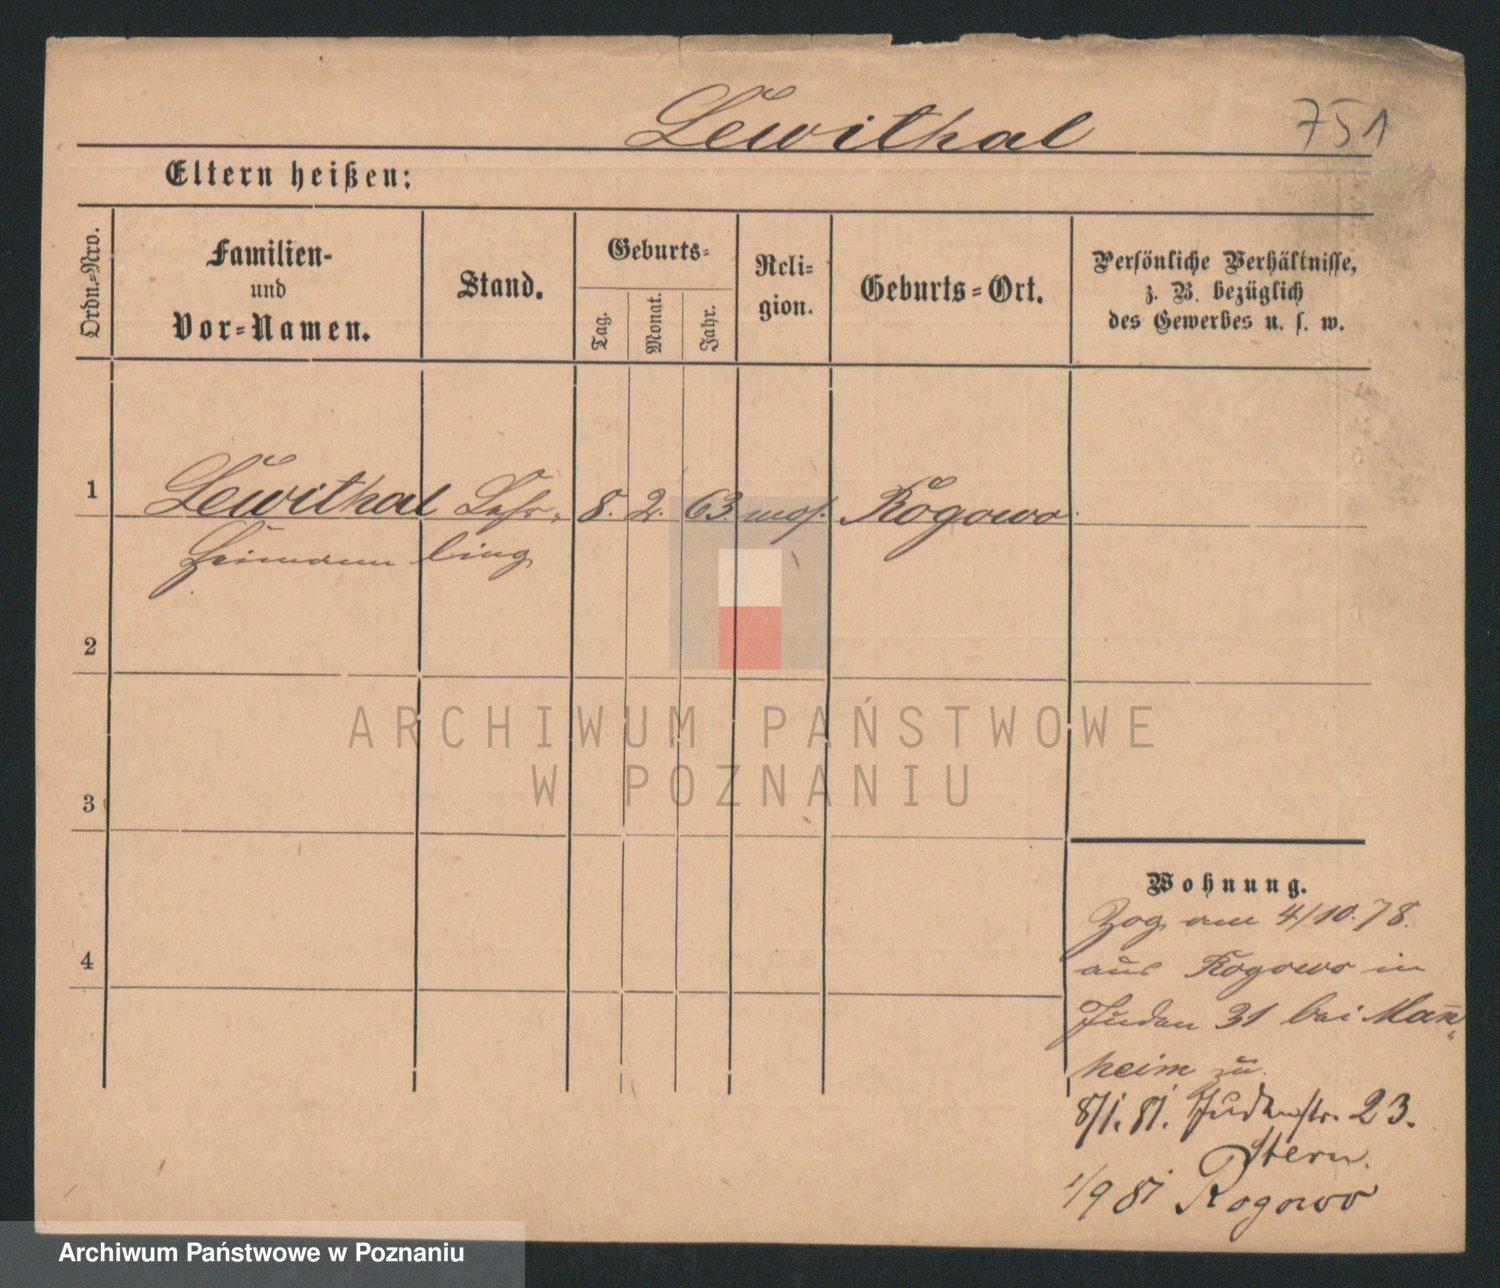 Lewithal
751
Eltern heißen:
Ordn.-Nro.
Familien-
und
Vor-Namen.
Stand.
Geburts-
Tag.
Monat.
Jahr.
Reli-
gion.
Geburts-Ort.
Persönliche Verhältnisse,
z. B. bezüglich
des Gewerbes u. s. w.
1
Lewithal Lehr- 8. 2. 63. mos. Rogowo
Heimann ling
2
3
4
ARCHIWUM PAŃSTWOWE
W POZNANIU
Wohnung.
Zog am 4/10.78.
aus Rogowo in
Juden 31 bei Man̄-
heim zu.
8/1.81. Judenstr. 23.
Stern.
1/9 81 Rogowo
Archiwum Państwowe w Poznaniu